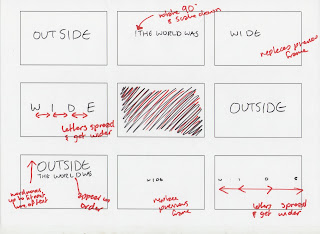 OUTSIDE
rotate 90°
& scale down
THE WORLD WAS
WIDE
replaces previous
frame
W I D E
letters spread
& get wider
OUTSIDE
OUTSIDE
THE WORLD WAS
appear in
order
WIDE
replace
previous
frame
W I D E
letters spread
& get wider